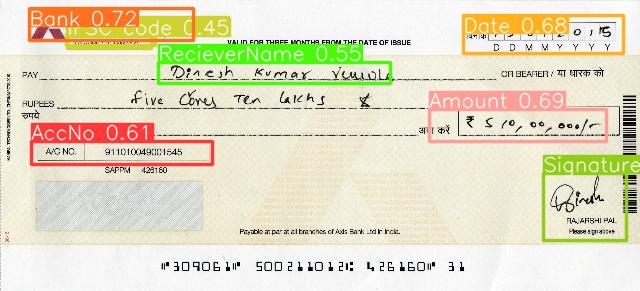 Bank 0.72
IFSC Code 0.45
Date 0.68
VALID FOR THREE MONTHS FROM THE DATE OF ISSUE
D D M M Y Y Y Y
RecieverName 0.55
PAY Dinesh Kumar OR BEARER / या धारक को
RUPEES five Cores Ten lakhs
रुपये
Amount 0.69
अदा करें ₹ 510,00,000/-
AccNo 0.61
A/C NO. 911010049001545
SAPPM 426160
Signature
RAJARSHI PAL
Please sign above
Payable at par at all branches of Axis Bank Ltd in India.
⑈309061⑈ 500211012⑆ 426160⑈ 31